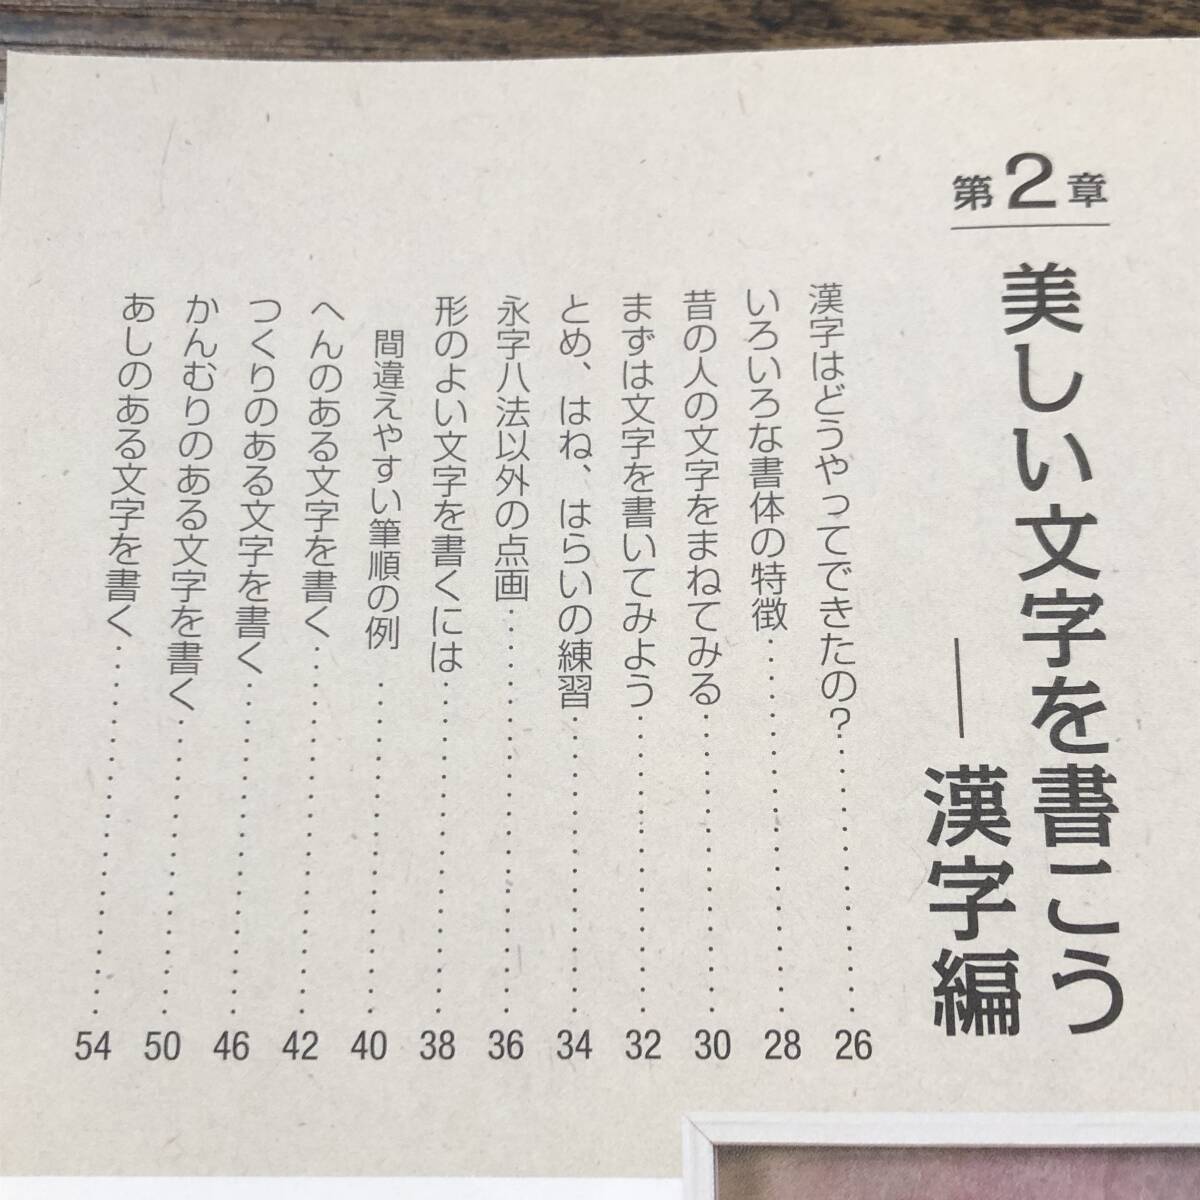 第2章
美しい文字を書こう
――漢字編
漢字はどうやってできたの？…………26
いろいろな書体の特徴…………28
昔の人の文字をまねてみる…………30
まずは文字を書いてみよう…………32
とめ、はね、はらいの練習…………34
永字八法以外の点画…………36
形のよい文字を書くには…………38
間違えやすい筆順の例…………40
へんのある文字を書く…………42
つくりのある文字を書く…………46
かんむりのある文字を書く…………50
あしのある文字を書く…………54